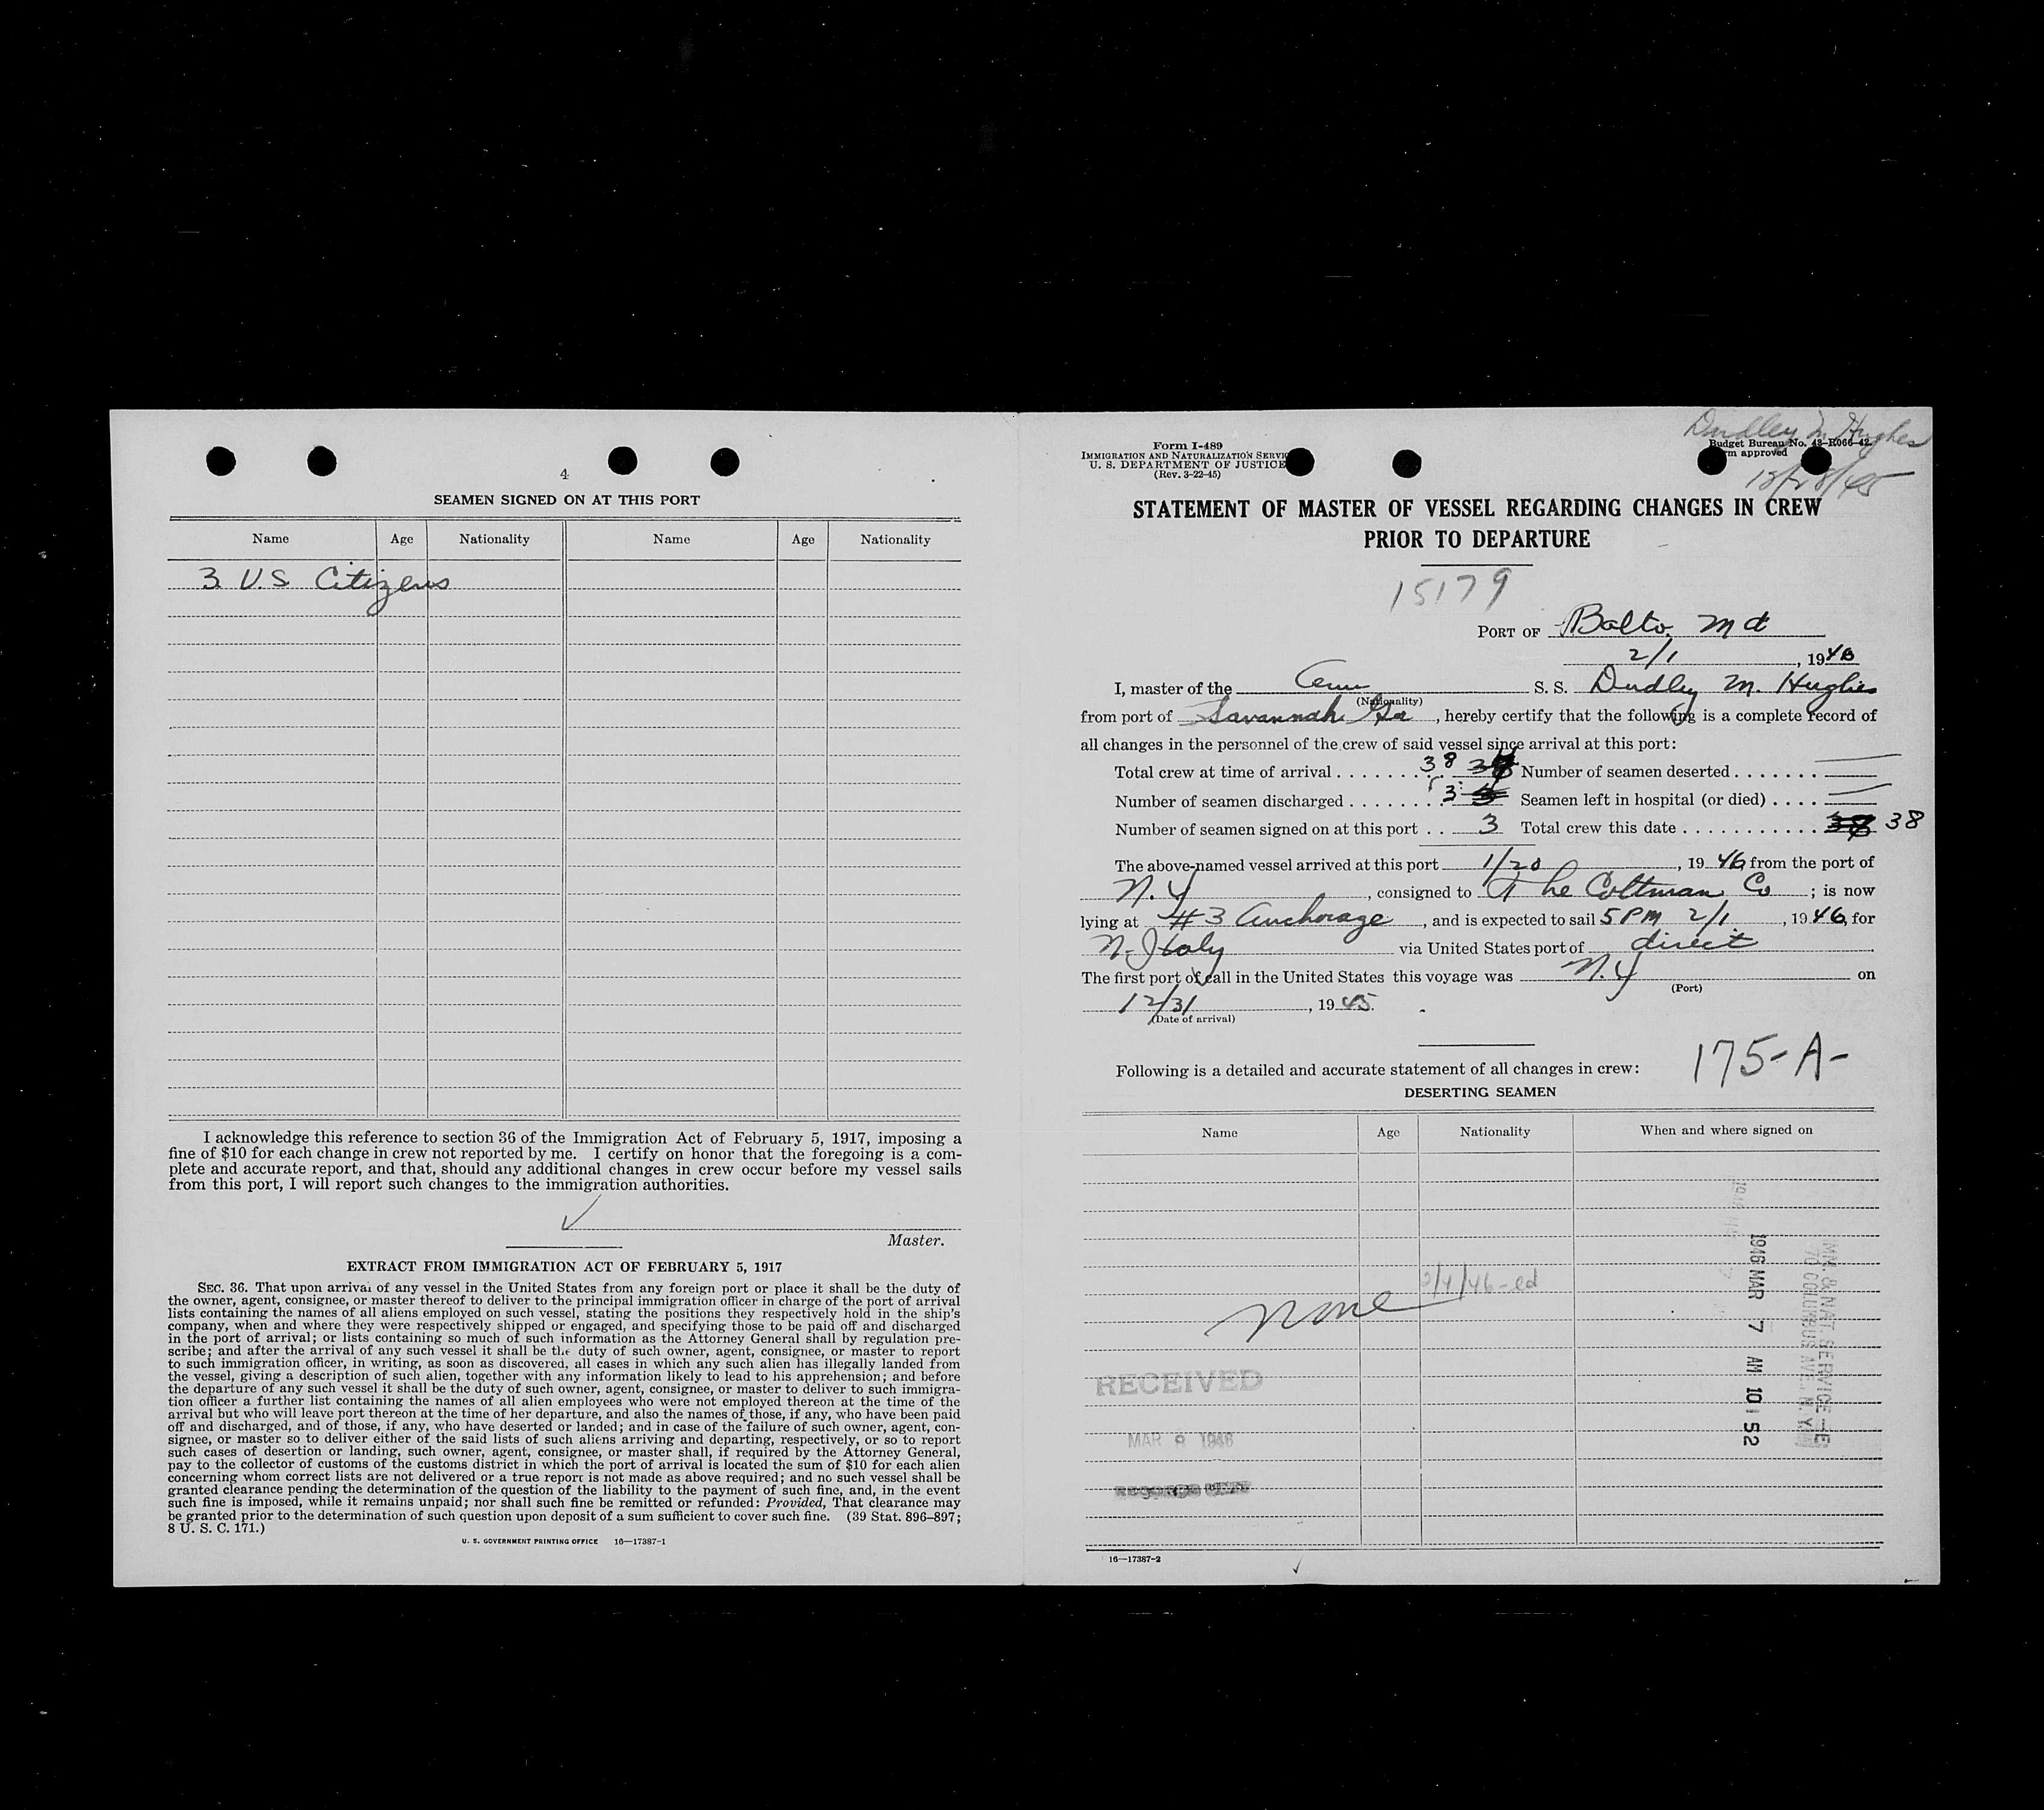 4
SEAMEN SIGNED ON AT THIS PORT
Name Age Nationality Name Age Nationality
3 U.S. Citizens
I acknowledge this reference to section 36 of the Immigration Act of February 5, 1917, imposing a
fine of $10 for each change in crew not reported by me. I certify on honor that the foregoing is a com-
plete and accurate report, and that, should any additional changes in crew occur before my vessel sails
from this port, I will report such changes to the immigration authorities.
Master.
EXTRACT FROM IMMIGRATION ACT OF FEBRUARY 5, 1917
SEC. 36. That upon arrival of any vessel in the United States from any foreign port or place it shall be the duty of
the owner, agent, consignee, or master thereof to deliver to the principal immigration officer in charge of the port of arrival
lists containing the names of all aliens employed on such vessel, stating the positions they respectively hold in the ship's
company, when and where they were respectively shipped or engaged, and specifying those to be paid off and discharged
in the port of arrival; or lists containing so much of such information as the Attorney General shall by regulation pre-
scribe; and after the arrival of any such vessel it shall be the duty of such owner, agent, consignee, or master to report
to such immigration officer, in writing, as soon as discovered, all cases in which any such alien has illegally landed from
the vessel, giving a description of such alien, together with any information likely to lead to his apprehension; and before
the departure of any such vessel it shall be the duty of such owner, agent, consignee, or master to deliver to such immigra-
tion officer a further list containing the names of all alien employees who were not employed thereon at the time of the
arrival but who will leave port thereon at the time of her departure, and also the names of those, if any, who have been paid
off and discharged, and of those, if any, who have deserted or landed; and in case of the failure of such owner, agent, con-
signee, or master so to deliver either of the said lists of such aliens arriving and departing, respectively, or so to report
such cases of desertion or landing, such owner, agent, consignee, or master shall, if required by the Attorney General,
pay to the collector of customs of the customs district in which the port of arrival is located the sum of $10 for each alien
concerning whom correct lists are not delivered or a true report is not made as above required; and no such vessel shall be
granted clearance pending the determination of the question of the liability to the payment of such fine, and, in the event
such fine is imposed, while it remains unpaid; nor shall such fine be remitted or refunded: Provided, That clearance may
be granted prior to the determination of such question upon deposit of a sum sufficient to cover such fine. (39 Stat. 896–897;
8 U. S. C. 171.)
U. S. GOVERNMENT PRINTING OFFICE 16—17387-1
Dudley M Hughes
Form I-489
IMMIGRATION AND NATURALIZATION SERVIC
U. S. DEPARTMENT OF JUSTICE
(Rev. 3-22-45)
Budget Bureau No. 43-R066-42.
rm approved
12/28/45
STATEMENT OF MASTER OF VESSEL REGARDING CHANGES IN CREW
PRIOR TO DEPARTURE
15179
PORT OF Balto. Md
2/1, 1946
I, master of the S. S. Dudley M. Hughes
(Nationality)
from port of Savannah Ga, hereby certify that the following is a complete record of
all changes in the personnel of the crew of said vessel since arrival at this port:
Total crew at time of arrival 38 Number of seamen deserted
Number of seamen discharged 3 Seamen left in hospital (or died)
Number of seamen signed on at this port 3 Total crew this date 38
The above-named vessel arrived at this port 1/20, 1946, from the port of
N.Y, consigned to The Coltman Co; is now
lying at #3 Anchorage, and is expected to sail 5 PM 2/1, 1946, for
N. Italy via United States port of direct
The first port of call in the United States this voyage was N.Y on
(Port)
12/31, 1945.
(Date of arrival)
175-A-
Following is a detailed and accurate statement of all changes in crew:
DESERTING SEAMEN
Name Age Nationality When and where signed on
/46-ed
None
RECEIVED
MAR 1946
1946 MAR 7 AM 10 52
IMM. & NAT. SERVICE
70 COLUMBUS AVE., N.Y.
16—17387-2